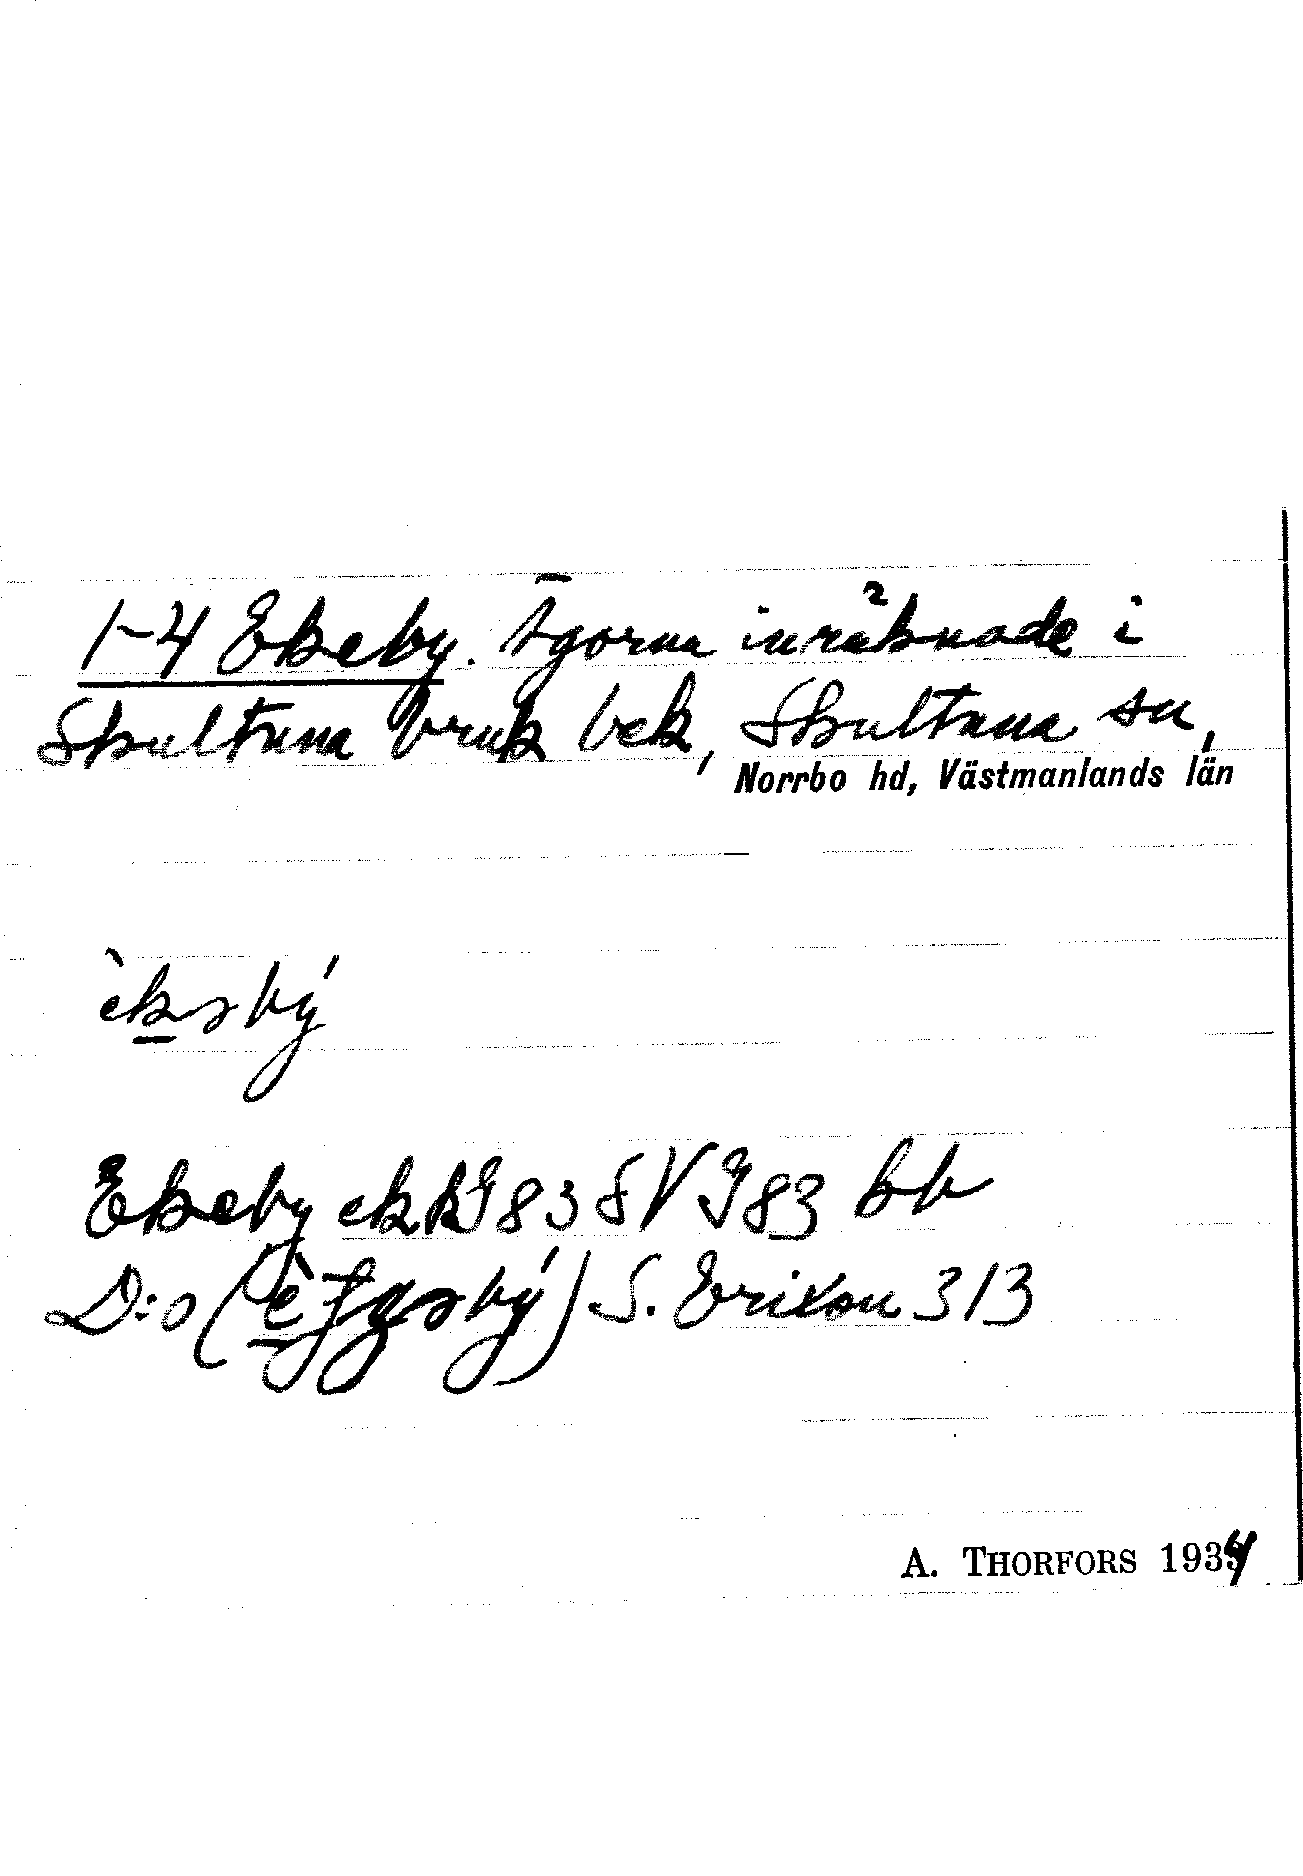 1-4 Ekeby. Ägorna inräknade i
Skultuna bruk bek, Skultuna sn,
Norrbo hd, Västmanlands län
èkəbý
Ekeby ekbl 983 SV J 983 bb
D:o ( ) S. Erixon 313
A. THORFORS 1934